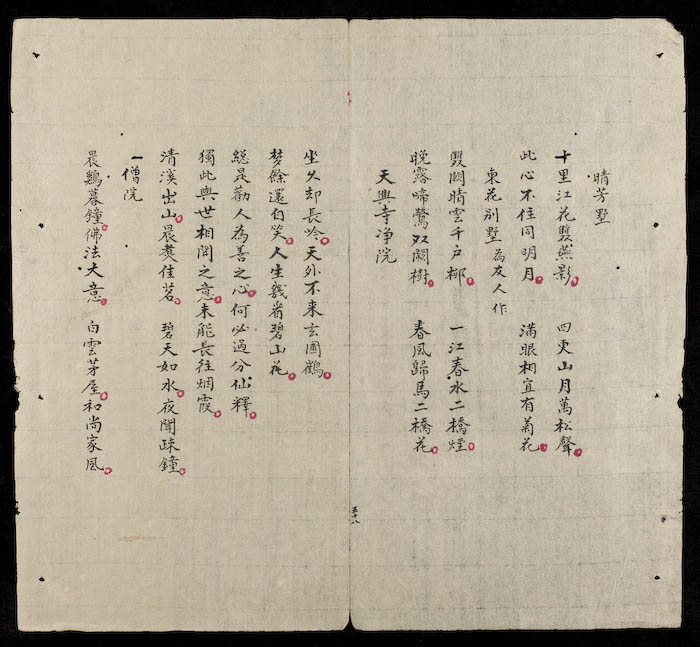 晴芳墅
十里江花雙燕影　四更山月萬松聲
此心不住同明月　滿眼相宜有菊花
東花別墅 為友人作
雙闕晴雲千戶柳　一江春水二橋煙
晚露啼鶯双闕樹　春風歸馬二橋花
天興寺净院
坐久却長吟天外不来玄圃鶴
梦餘還自笑人生幾看碧山花
緫是勸人為善之心何必過分仙釋
獨此與世相関之意未能長往烟霞
清溪出山晨煑佳茗　碧天如水夜聞疎鐘
一僧院
晨鷄暮鐘佛法大意　白雲茅屋和尚家風
五十八